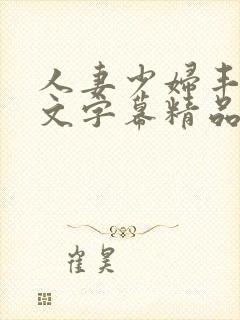 人妻少婦丰
文字幕精品
崔昊